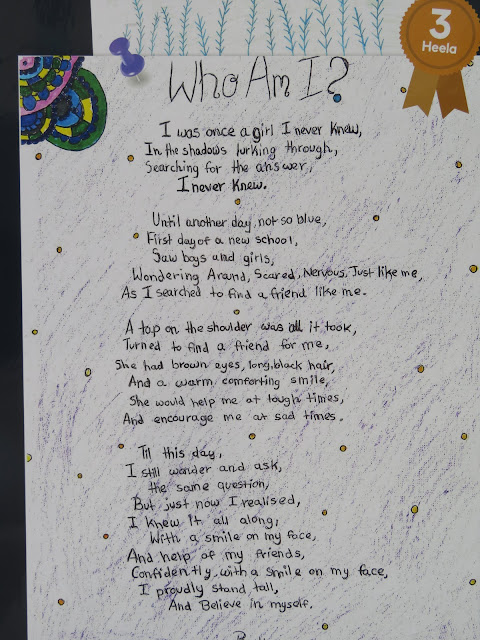 3
Heela
Who Am I?
I was once a girl I never knew,
In the shadows lurking through,
Searching for the answer,
I never knew.
Until another day, not so blue,
First day of a new school,
Saw boys and girls,
Wondering Around, Scared, Nervous, Just like me,
As I searched to find a friend like me.
A tap on the shoulder was all it took,
Turned to find a friend for me,
She had brown eyes, long, black hair,
And a warm comforting smile,
She would help me at tough times,
And encourage me at sad times.
Til this day,
I still wonder and ask,
the same question,
But just now I realised,
I knew it all along,
With a smile on my face,
And help of my friends,
Confidently with a smile on my face,
I proudly stand tall,
And Believe in myself.